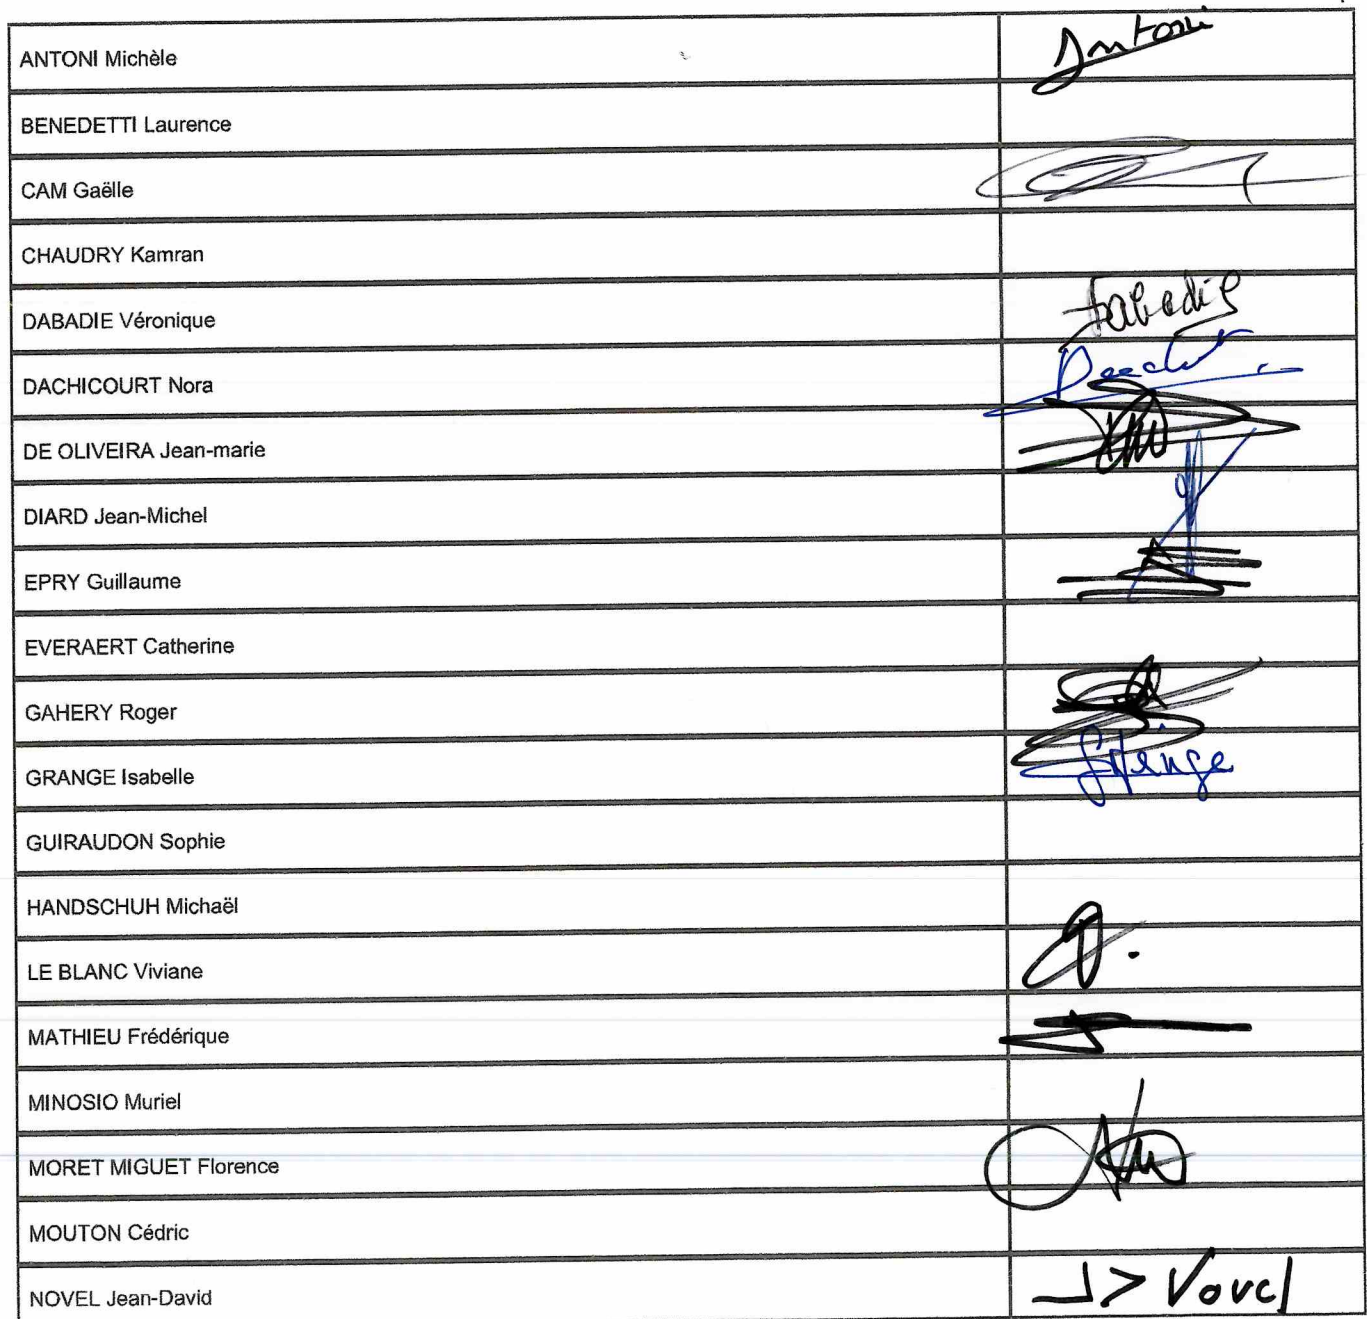 ANTONI Michèle Antoni
BENEDETTI Laurence
CAM Gaëlle
CHAUDRY Kamran
DABADIE Véronique Dabadie
DACHICOURT Nora
DE OLIVEIRA Jean-marie
DIARD Jean-Michel
EPRY Guillaume
EVERAERT Catherine
GAHERY Roger
GRANGE Isabelle Grange
GUIRAUDON Sophie
HANDSCHUH Michaël
LE BLANC Viviane
MATHIEU Frédérique
MINOSIO Muriel
MORET MIGUET Florence
MOUTON Cédric
NOVEL Jean-David